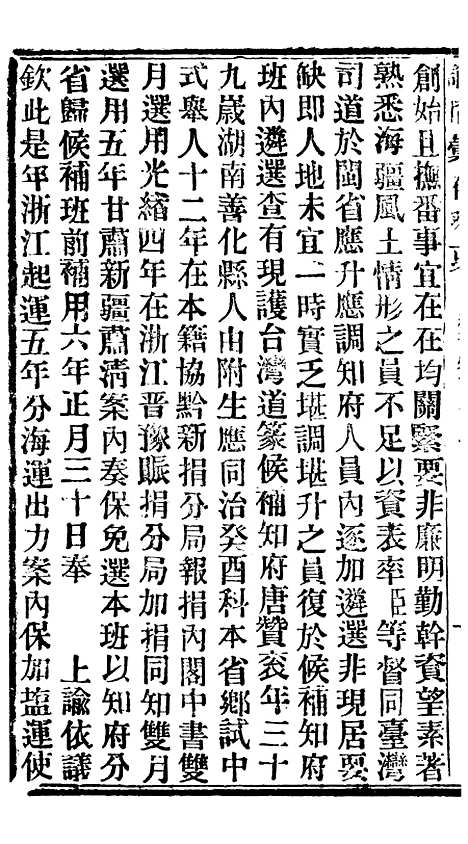 創始且撫番事宜在在均關緊要非廉明勤幹資望素著
熟悉海疆風土情形之員不足以資表率臣等督同臺灣
司道於閩省應升應調知府人員內逐加遴選非現居要
缺卽人地未宜一時實乏堪調堪升之員復於候補知府
班內遴選查有現護台灣道篆候補知府唐贊袞年三十
九歲湖南善化縣人由附生應同治癸酉科本省鄉試中
式舉人十二年在本籍協黔新捐分局報捐內閣中書雙
月選用光緖四年在浙江晋豫賑捐分局加捐同知雙月
選用五年甘肅新疆肅淸案內奏保免選本班以知府分
省歸候補班前補用六年正月三十日奉 上諭依議
欽此是年浙江起運五年分海運出力案內保加塩運使